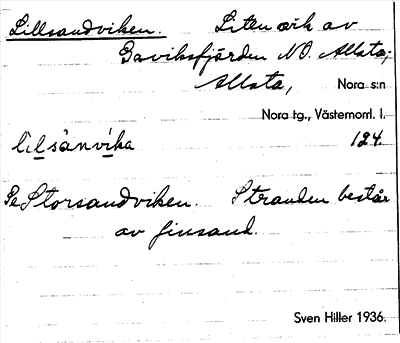 Lillsandviken. Liten vik av
Gaviksfjärden NO. Allsta;
Allsta, Nora s:n
Nora tg., Västernorrl. l.
lilsànvika 124.
Storsandviken. Stranden består
av finsand.
Sven Hiller 1936.